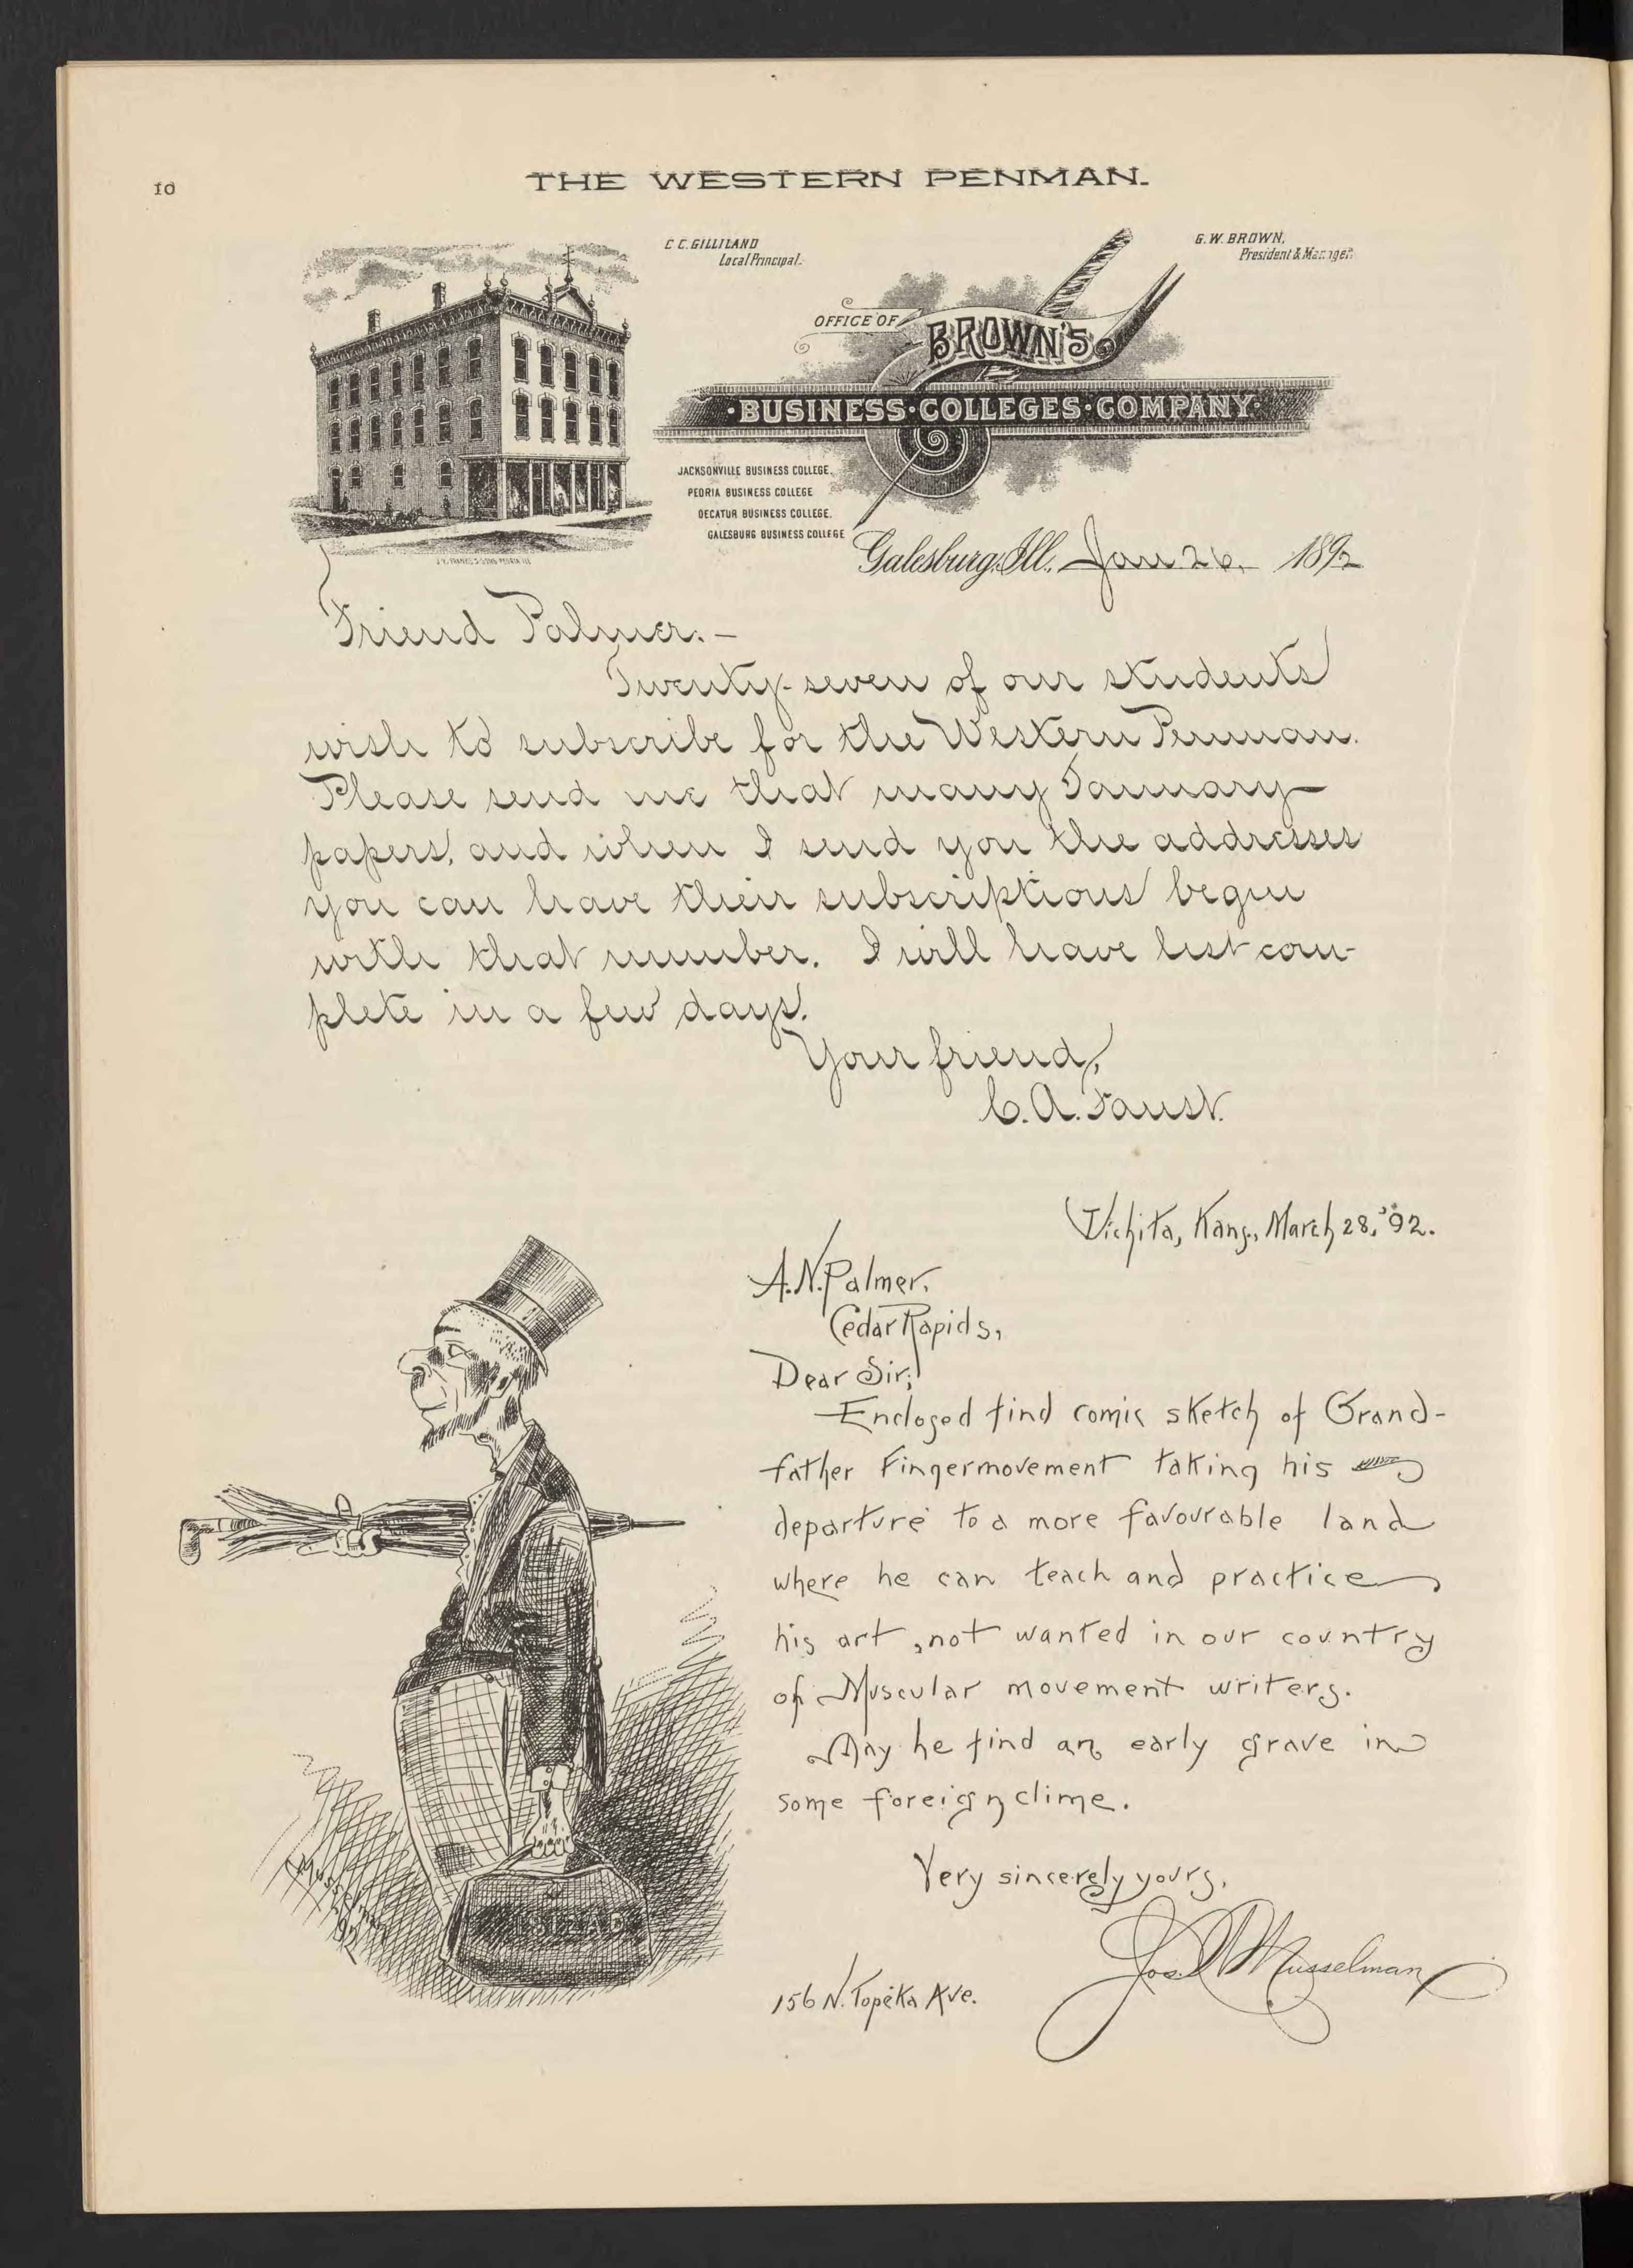 10
THE WESTERN PENMAN.
C C. GILLILAND
Local Principal.
G. W. BROWN,
President & Manager.
OFFICE OF
BROWN'S
·BUSINESS·COLLEGES·COMPANY·
JACKSONVILLE BUSINESS COLLEGE.
PEORIA BUSINESS COLLEGE
DECATUR BUSINESS COLLEGE.
GALESBURG BUSINESS COLLEGE
Galesburg, Ill. Jan 26, 1892
Friend Palmer:—
Twenty-seven of our students
wish to subscribe for the Western Penman.
Please send me that many January
papers, and when I send you the addresses
you can have their subscriptions begin
with that number. I will have list com-
plete in a few days.
Your friend,
C. A. Faust.
Wichita, Kans., March 28, '92.
A. N. Palmer,
Cedar Rapids,
Dear Sir;
Enclosed find comic sketch of Grand-
father Fingermovement taking his
departure to a more favourable land
where he can teach and practice
his art, not wanted in our country
of Muscular movement writers.
May he find an early grave in
some foreign clime.
Very sincerely yours,
Musselman
156 N. Topeka Ave.
Musselman
92